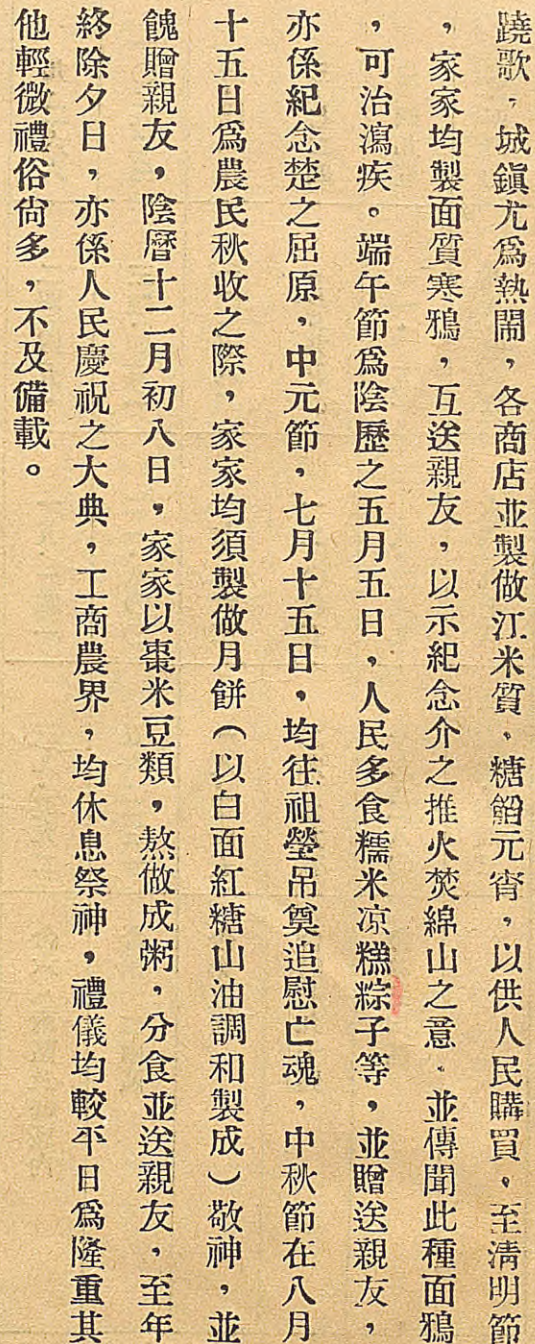 蹺歌，城鎮尤爲熱鬧，各商店並製做江米質、糖餡元宵，以供人民購買，至清明節
，家家均製面質寒鴉，互送親友，以示紀念介之推火焚綿山之意，並傳聞此種面鴉
，可治瀉疾。端午節爲陰歷之五月五日，人民多食糯米凉糕粽子等，並贈送親友，
亦係紀念楚之屈原，中元節，七月十五日，均往祖瑩吊奠追慰亡魂，中秋節在八月
十五日爲農民秋收之際，家家均須製做月餅（以白面紅糖山油調和製成）敬神，並
餽贈親友，陰曆十二月初八日，家家以棗米豆類，熬做成粥，分食並送親友，至年
終除夕日，亦係人民慶祝之大典，工商農界，均休息祭神，禮儀均較平日爲隆重其
他輕微禮俗尙多，不及備載。